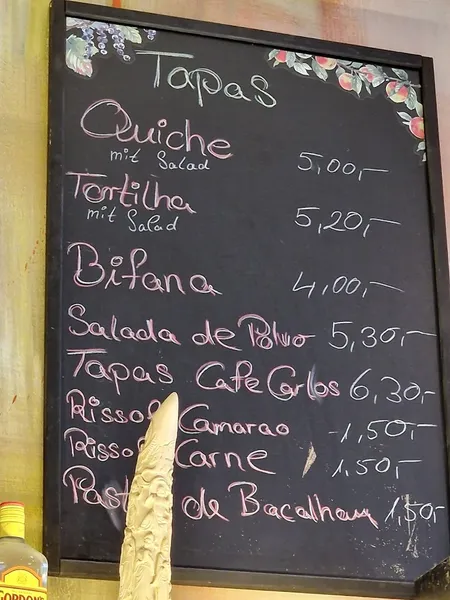 Tapas
Quiche
mit Salad 5,00,-
Tortilha
mit Salad 5,20,-
Bifana 4,00,-
Salada de Polvo 5,30,-
Tapas Cafe Carlos 6,30,-
Rissol Camarao 1,50,-
Rissol Carne 1,50,-
de Bacalhau 1,50,-
GORDON'S